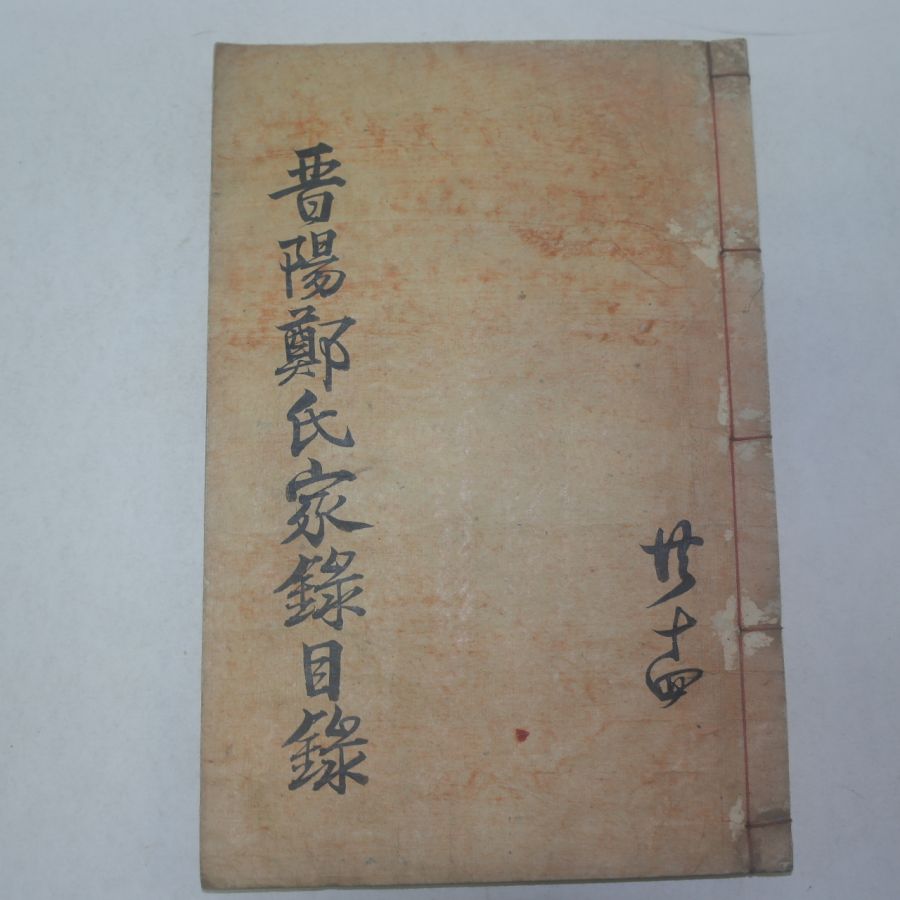 晋陽鄭氏家錄目錄
共十四